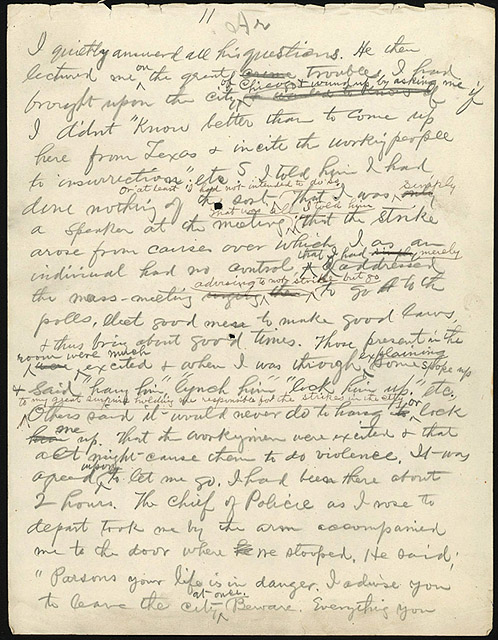 11
I quietly answered all his questions. He then
lectured me on the great trouble I had
brought upon the city of Chicago & wound up by asking me if
I didn't "Know better than to come up
here from Texas & incite the working people
to insurrection" etc. I told him I had
done nothing of the sort or at least I had not intended to do so, that I was simply
a speaker at the meeting that was all. I told him that the strike
arose from causes over which I as an
individual had no control, that I had merely addressed
the mass-meeting advising to not strike but go to the
polls, elect good men to make good laws,
& thus bring about good times. Those present in the
room were much excited & when I was through explaining some spoke up
& said "hang him" "lynch him" "lock him up," etc.
to my great surprise holding me responsible for the strikes in the city
Others said it would never do to hang or lock
me up. That the workingmen were excited & that
act might cause them to do violence. It was
agreed to let me go. I had been there about
2 hours. The Chief of Police as I rose to
depart took me by the arm accompanied
me to the door where we stopped. He said;
"Parsons your life is in danger. I advise you
to leave the city at once. Beware. Everything you